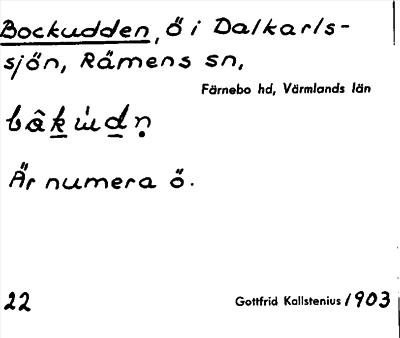 Bockudden, ö i Dalkarls-
sjön, Rämens sn,
Färnebo hd, Värmlands län
Är numera ö.
22
Gottfrid Kallstenius 1903